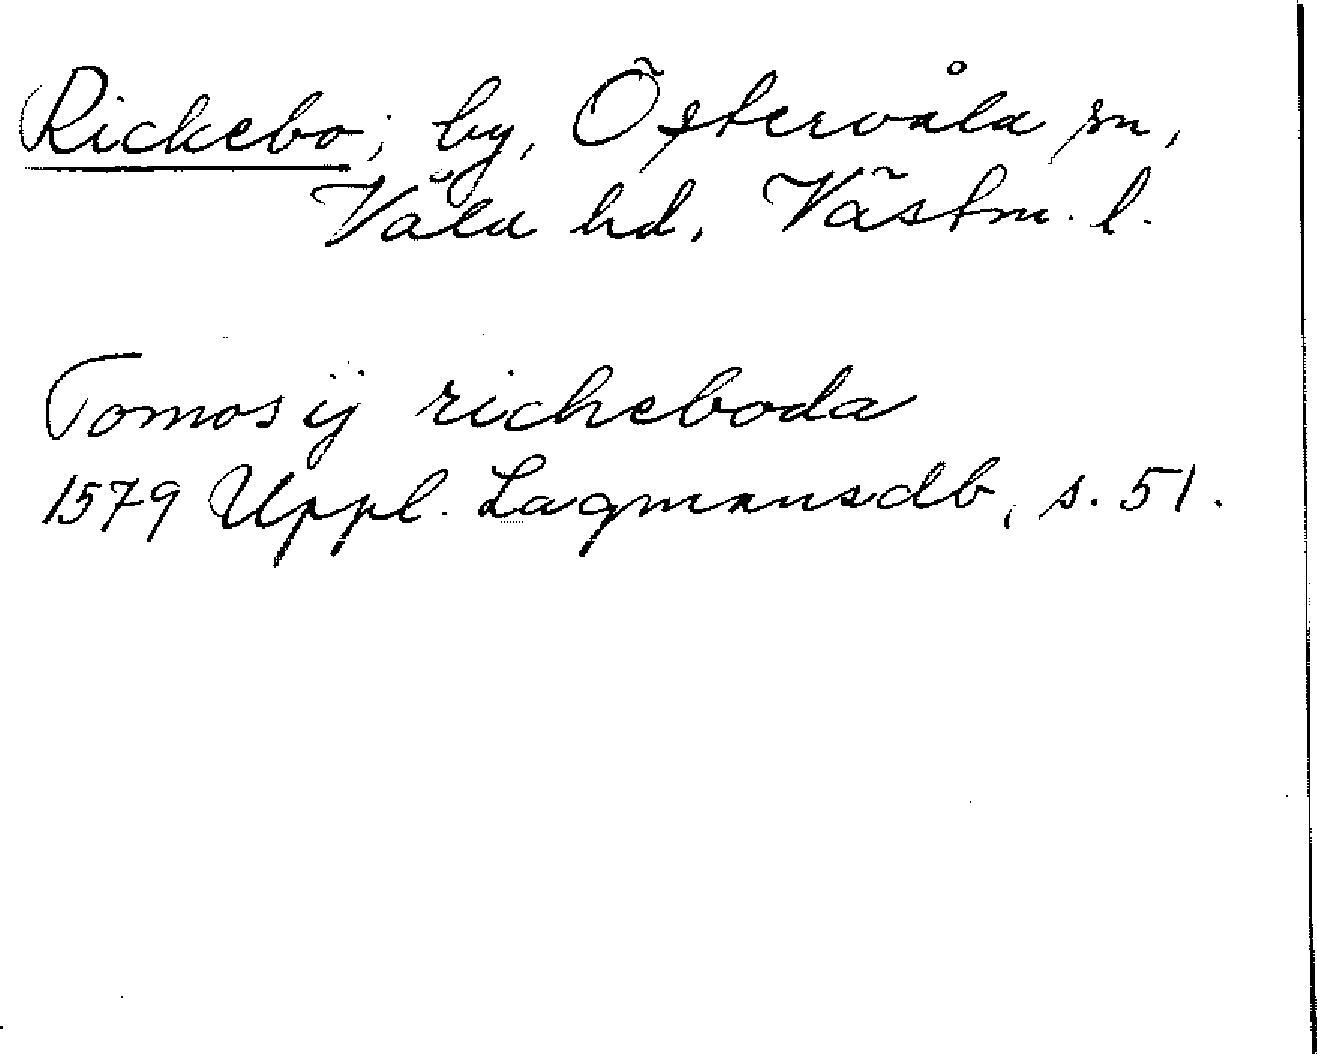 Rickebo; by, Östervåla sn,
Våla hd, Västm. l.
Tomos ij richeboda
1579 Uppl. Lagmansdb, s. 51.